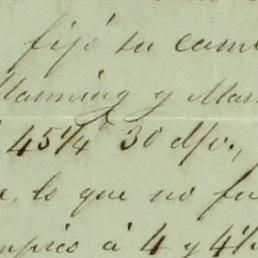 fijó su cam
Manning y Mar
45¼ 30 d/v.,
e, lo que no fu
á 4 y 4½